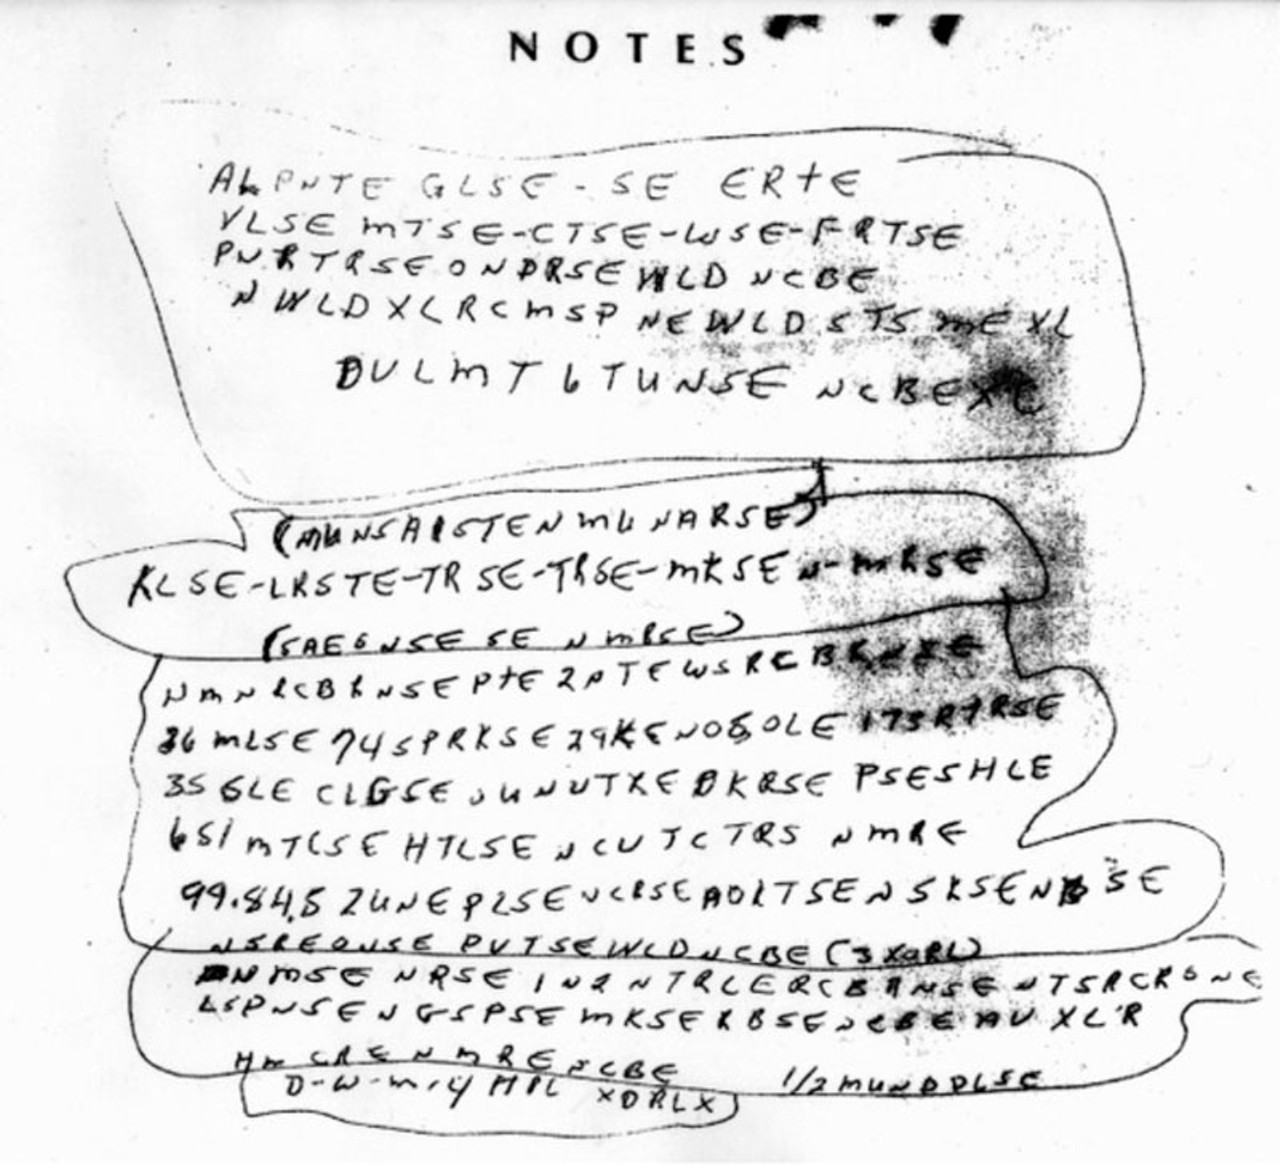 NOTES
ALPNTE GLSE - SE ERTE
VLSE MTSE-CTSE-WSE-FRTSE
PNRTRSE ONDRSE WLD NCBE
NWLDXLRCMSP NEWLDSTS ME XL
DULMT6TUNSE NCBEXC
(MUNSAISTEN MUNARSE)
KLSE-LRSTE-TRSE-TRSE-MKSEN-MRSE
(SAE6NSE SE NMRSE)
NMNRCBRNSE PTE2PTEWSRCBRNSE
36 MLSE 74SPRKSE 29KENOSOLE 173RTRSE
35 GLE CLGSE UUNUTXE DKRSE PSESHLE
651 MTCSE HTLSE NCUTCTRS NMRE
99.84.5 2UNE PLSE NCRSE AOLTSENSKSENBSE
NSREONSE PUTSEWLDNCBE (3XORL)
NMSE NRSE IN2NTRLERCBRNSE NTSRCRONE
LSPNSENGSPSE MKSERBSENCBE AU XL'R
HM CRE NMRE NCBE 1/2 MUNDDLSE
D-W-M-4 HPL XDRLX